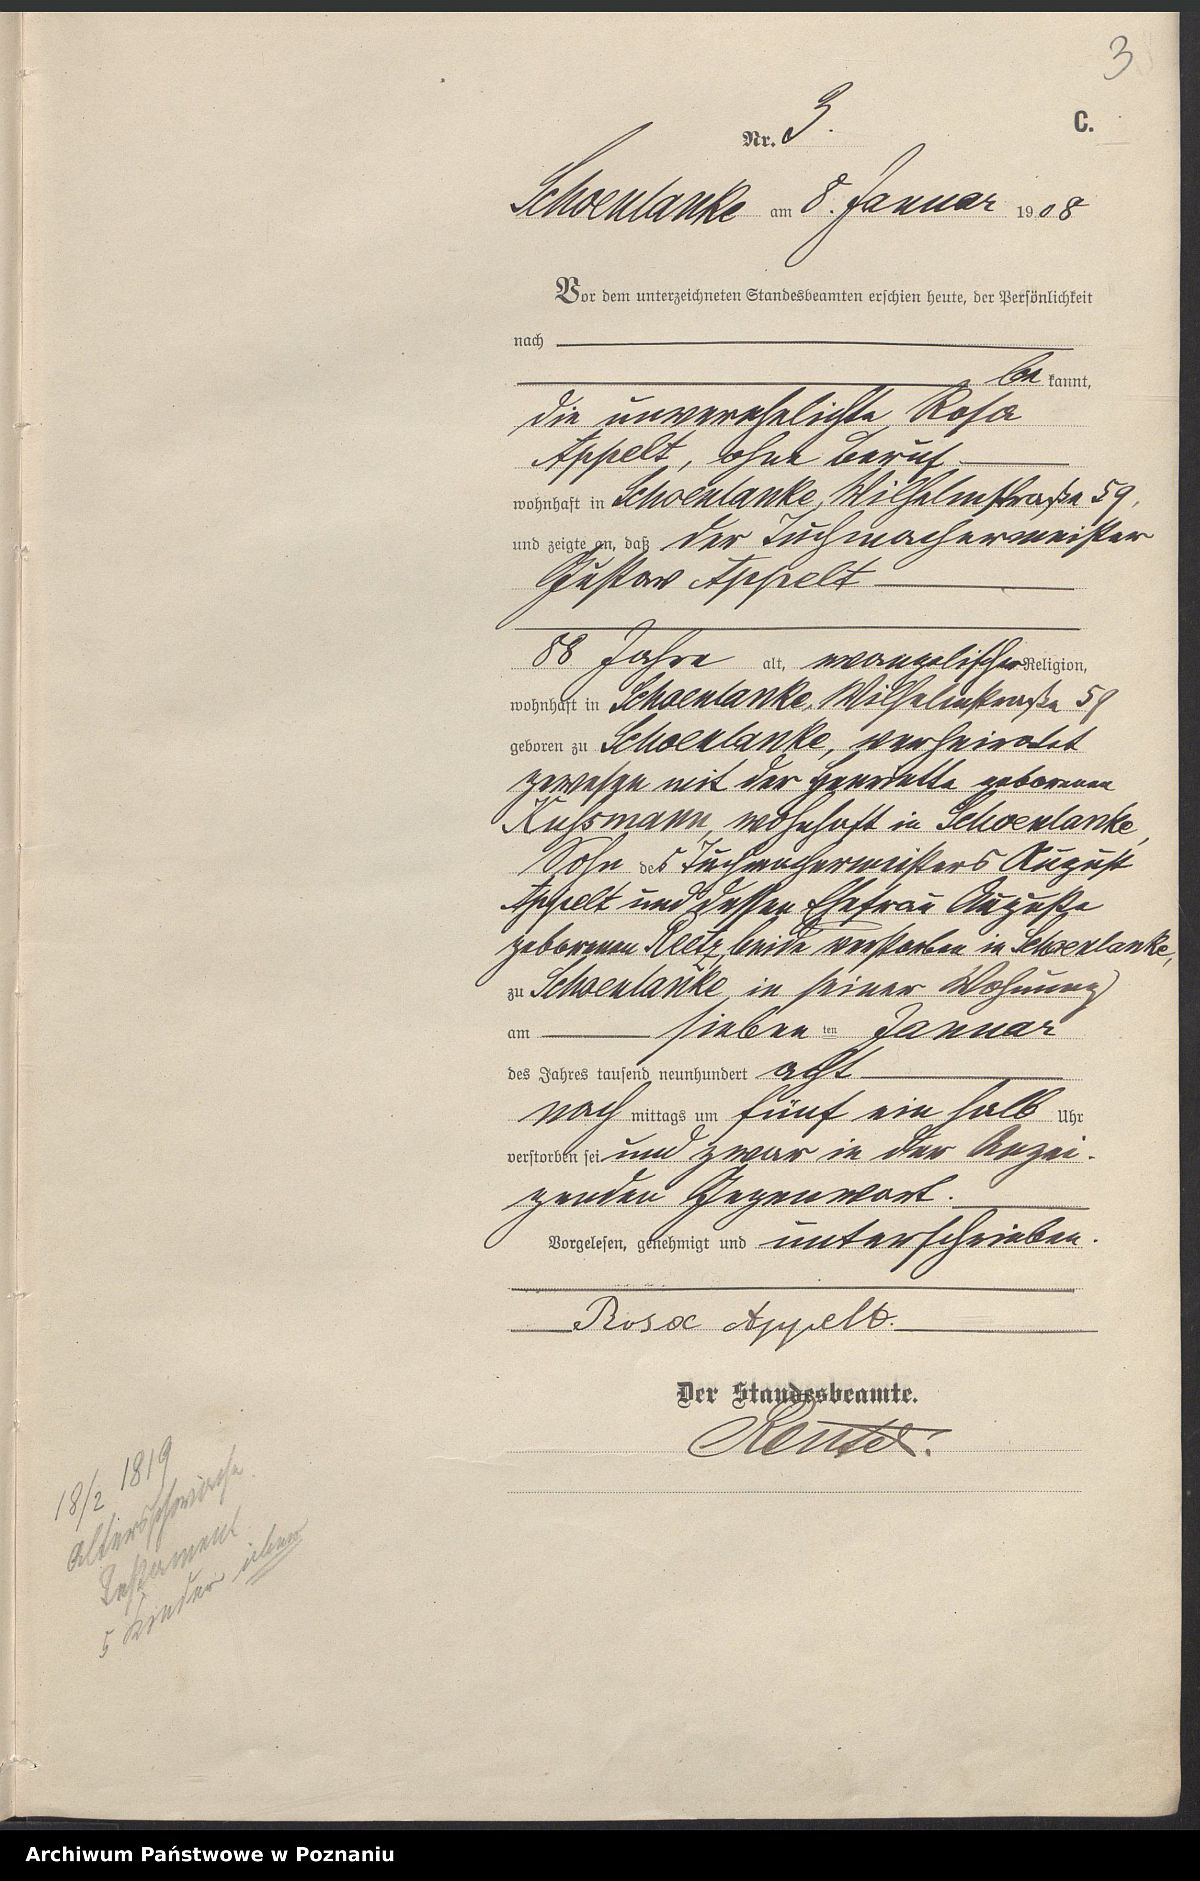 3
C.
Nr. 3.
Schoenlanke am 8. Januar 1908
Vor dem unterzeichneten Standesbeamten erschien heute, der Persönlichkeit
nach
be kannt,
die unverehelichte Rosa
Appelt, ohne Beruf
wohnhaft in Schoenlanke, Wilhelmstraße 59,
und zeigte an, daß der Tuchmachermeister
Gustav Appelt
88 Jahre alt, evangelischer Religion,
wohnhaft in Schoenlanke, Wilhelmstraße 59
geboren zu Schoenlanke, verheiratet
gewesen mit der Henriette geborenen
Kuhsmann, wohnhaft in Schoenlanke,
Sohn des Tuchmachermeisters August
Appelt und dessen Ehefrau Auguste
geborenen Reetz, beide verstorben in Schoenlanke,
zu Schoenlanke in seiner Wohnung
am sieben ten Januar
des Jahres tausend neunhundert acht
nach mittags um fünf ein halb Uhr
verstorben sei und zwar in der Anzei-
genden Gegenwart.
Vorgelesen, genehmigt und unterschrieben.
Rosa Appelt.
Der Standesbeamte.
18/2 1819
Altersschwäche
Testament
5 Kinder
Archiwum Państwowe w Poznaniu